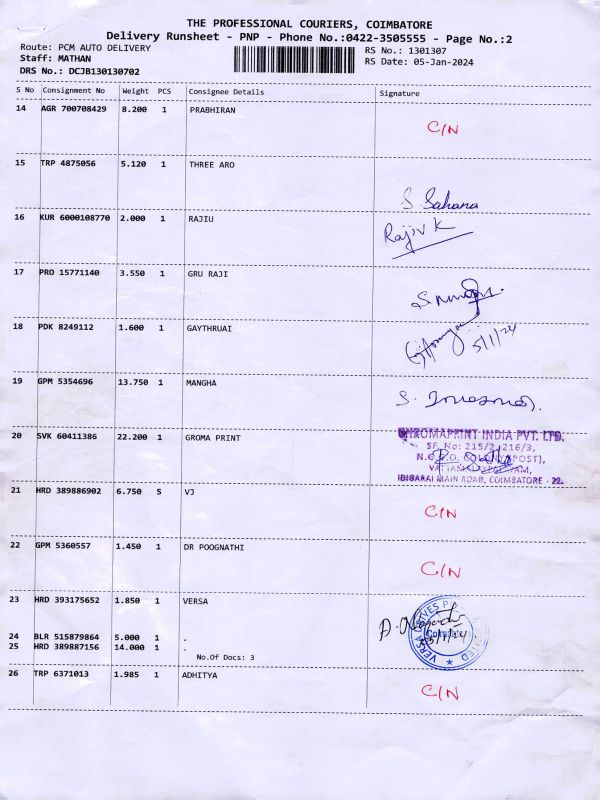 THE PROFESSIONAL COURIERS, COIMBATORE
Delivery Runsheet - PNP - Phone No.:0422-3505555 - Page No.:2
Route: PCM AUTO DELIVERY RS No.: 1301307
Staff: MATHAN RS Date: 05-Jan-2024
DRS No.: DCJB130130702
S No Consignment No Weight PCS Consignee Details Signature
14 AGR 700708429 8.200 1 PRABHIRAN C/N
15 TRP 4875056 5.120 1 THREE ARO
S. Sahana
16 KUR 6000108770 2.000 1 RAJIU Rajiv K
17 PRO 15771140 3.550 1 GRU RAJI
18 PDK 8249112 1.600 1 GAYTHRUAI 5/1/24
19 GPM 5354696 13.750 1 MANGHA
20 SVK 60411386 22.200 1 GROMA PRINT CHROMAPRINT INDIA PVT. LTD.
SF. No: 215/2, 216/3,
IDIGARAI MAIN ROAD, COIMBATORE - 22.
21 HRD 389886902 6.750 5 VJ C/N
22 GPM 5360557 1.450 1 DR POOGNATHI C/N
23 HRD 393175652 1.850 1 VERSA
24 BLR 515879864 5.000 1 .
25 HRD 389887156 14.000 1 .
No.Of Docs: 3
26 TRP 6371013 1.985 1 ADHITYA C/N